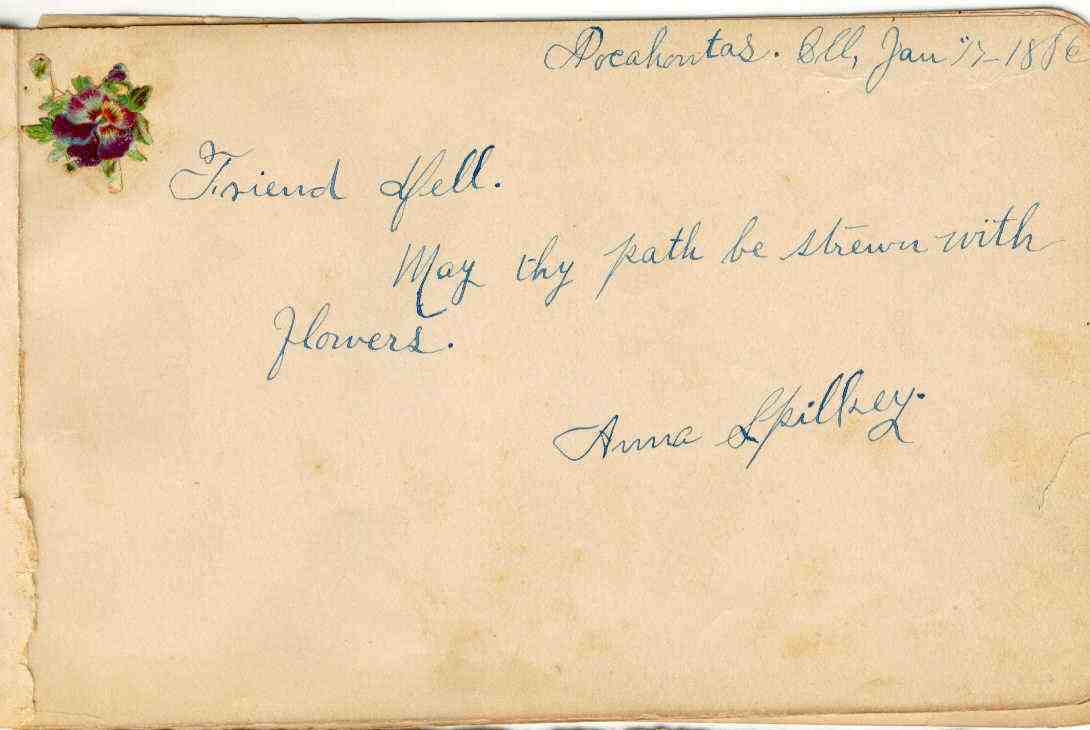 Pocahontas. Ill, Jan 17-188
Friend Nell.
May thy path be strewn with
flowers.
Anna